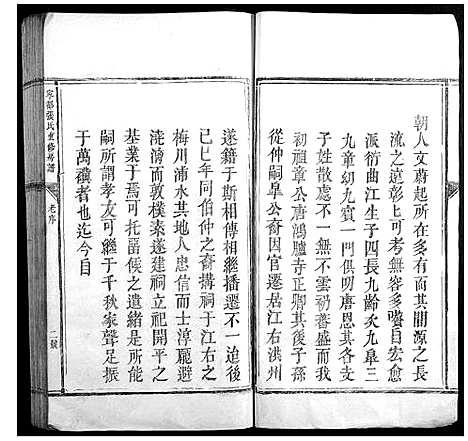 朝人文蔚起所在多有而其開源之長
流之遠彰上可考無容多嘴自宏愈
派衍曲江生子四長九齡次九臯三
九童幼九賓一門俱明唐恩恩
子姓散處不一無不雲礽蕃盛而
初祖章公唐鴻臚寺正卿其後子孫
從仲嗣臯公裔因官遷居江右洪州
遂籍于斯相傳相繼播遷不一迨後
己巳年同伯仲之裔搆祠于江右之
梅川浦水其地人忠信而士淳麗避
澆漓而敦樸素遂建祠立祀開平之
基業于焉可托畱候之遺緒是所
嗣所謂孝友可繼于千秋家聲足振
于萬禩者也迄今目
寧都張氏重修房譜
老序
一號